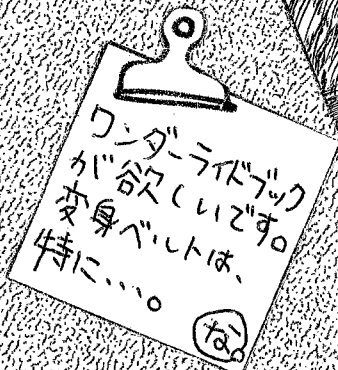 ワンダーライドブック
が欲しいです。
変身ベルトは、
特に…。
な。